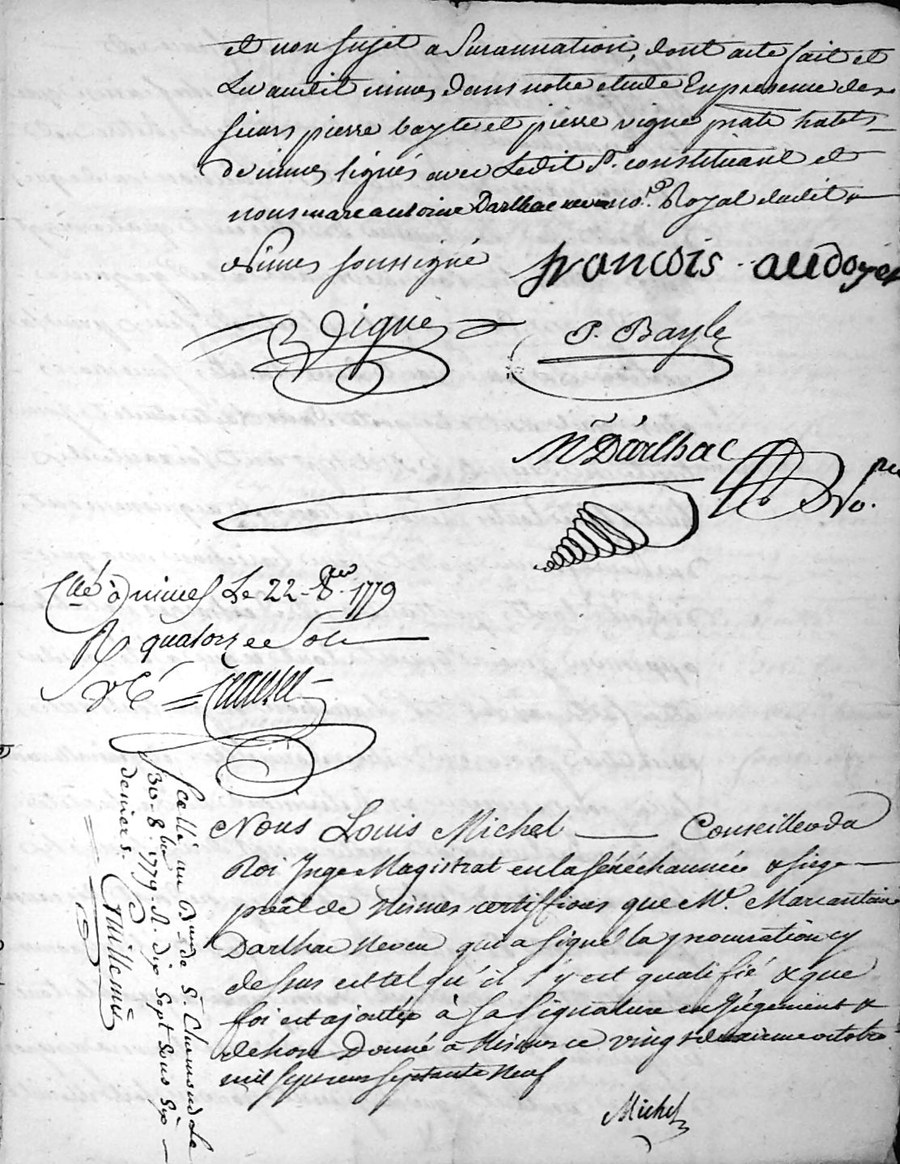 et non sujet a Surannation, dont acte fait et
Lu audit nimes dans notre etude En presence des
sieurs pierre bayle et pierre vigne prats habts
de nimes signés avec Ledit Sr. constituant et
nous marc antoine Darlhac neveu nore. Royal dudit
Nimes soussigné
francois audoyer
Vigne
P. Bayle
M Darlhac
No. re
Cllé à nimes Le 22 8bre 1779
R quatorze sols
Scellé au Bau de St. Chamond Le
30. 8bre. 1779. R. dix Sept sous six
deniers.
Nous Louis Michel Conseiller du
Roi Juge Magistrat en la sénéchaussée & siège
præal de Nismes certiffions que Me. Marcantoine
Darlhac Neveu qui a signé la procuration cy
dessus est tel qu'il s'y est qualifié & que
foi est ajoutée à sa signature en jugement &
dehors Donné à Nismes ce vingt deuxieme octobre
mil sept cens septante Neuf
Michel